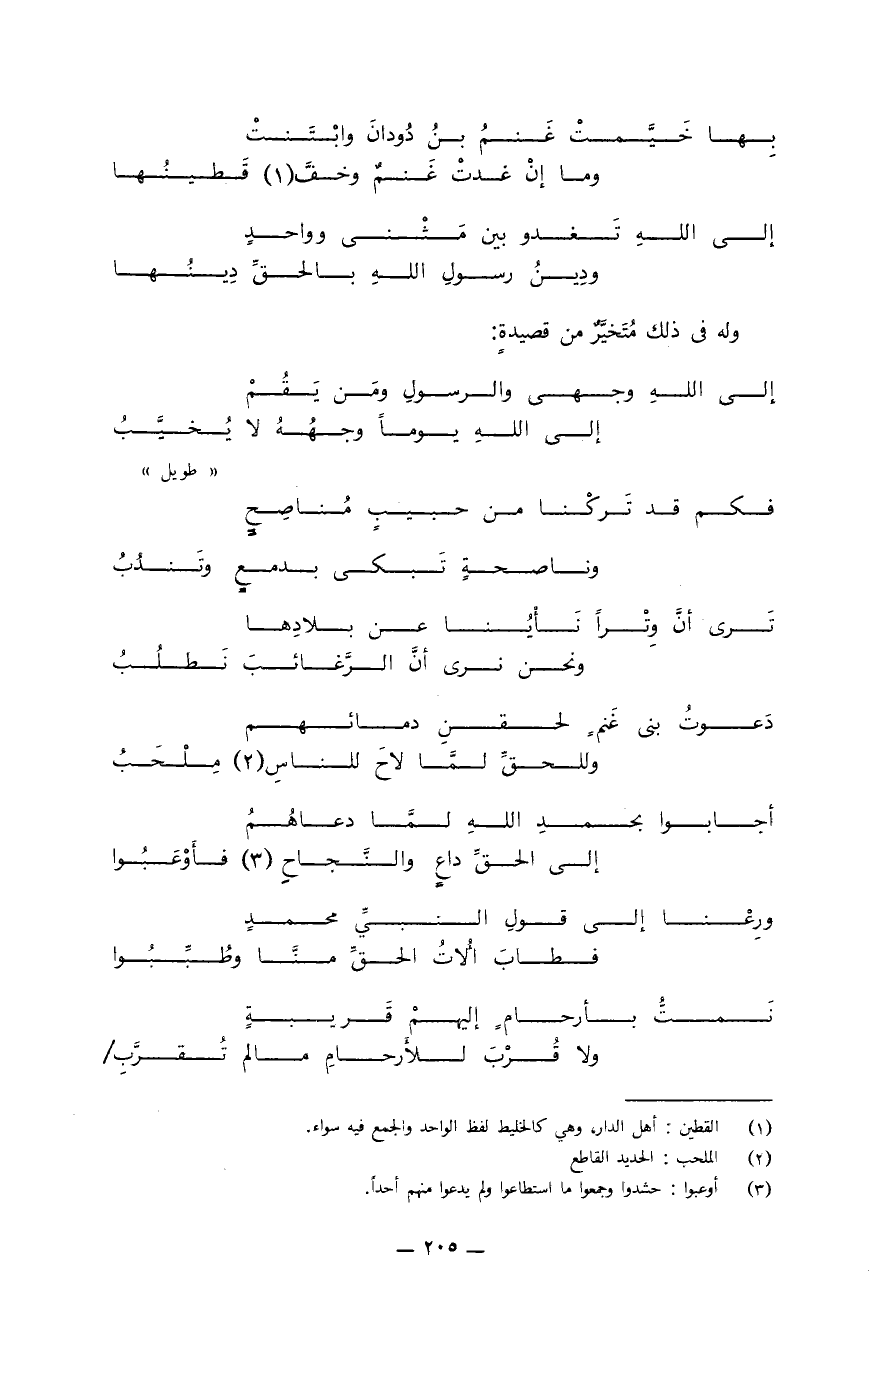 بِها خَيَّمتْ غَنمُ بنُ دُودانَ وابْتَنتْ
وما إنْ غدتْ غَنمٌ وخفَّ(١) قَطينُها
إلى اللهِ تَغدو بين مَثْنى وواحدٍ
ودِينُ رسولِ اللهِ بالحقِّ دِينُها
وله فى ذلك مُتَخيَّرٌ من قصيدةٍ:
إلى اللهِ وجهى والرسولِ ومَن يَقُمْ
إلى اللهِ يوماً وجهُهُ لا يُخيَّبُ
« طويل »
فكم قد تَركْنا من حبيبٍ مُناصِحٍ
وناصحةٍ تَبكى بدمعٍ وتَندُبُ
تَرى أنَّ وِتْراً نَأيُنا عن بلادِها
ونحن نرى أنَّ الرَّغائبَ نَطلُبُ
دَعوتُ بنى غَنمٍ لحقنِ دمائهم
وللحقِّ لمَّا لاحَ للناسِ(٢) مِلْحَبُ
أجابوا بحمدِ اللهِ لمَّا دعاهُمُ
إلى الحقِّ داعٍ والنَّجاحِ (٣) فأوْعَبُوا
ورِعْنا إلى قولِ النبيِّ محمدٍ
فطابَ الُاتُ الحقِّ منَّا وطُيِّبُوا
نَمتُّ بأرحامٍ إليهمْ قَريبةٍ
ولا قُرْبَ للأرحامِ مالم تُقرَّبِ/
(١) القطين : أهل الدار، وهي كالخليط لفظ الواحد والجمع فيه سواء.
(٢) الملحب : الحديد القاطع
(٣) أوعبوا : حشدوا وجمعوا ما استطاعوا ولم يدعوا منهم أحداً.
— ٢٠٥ —